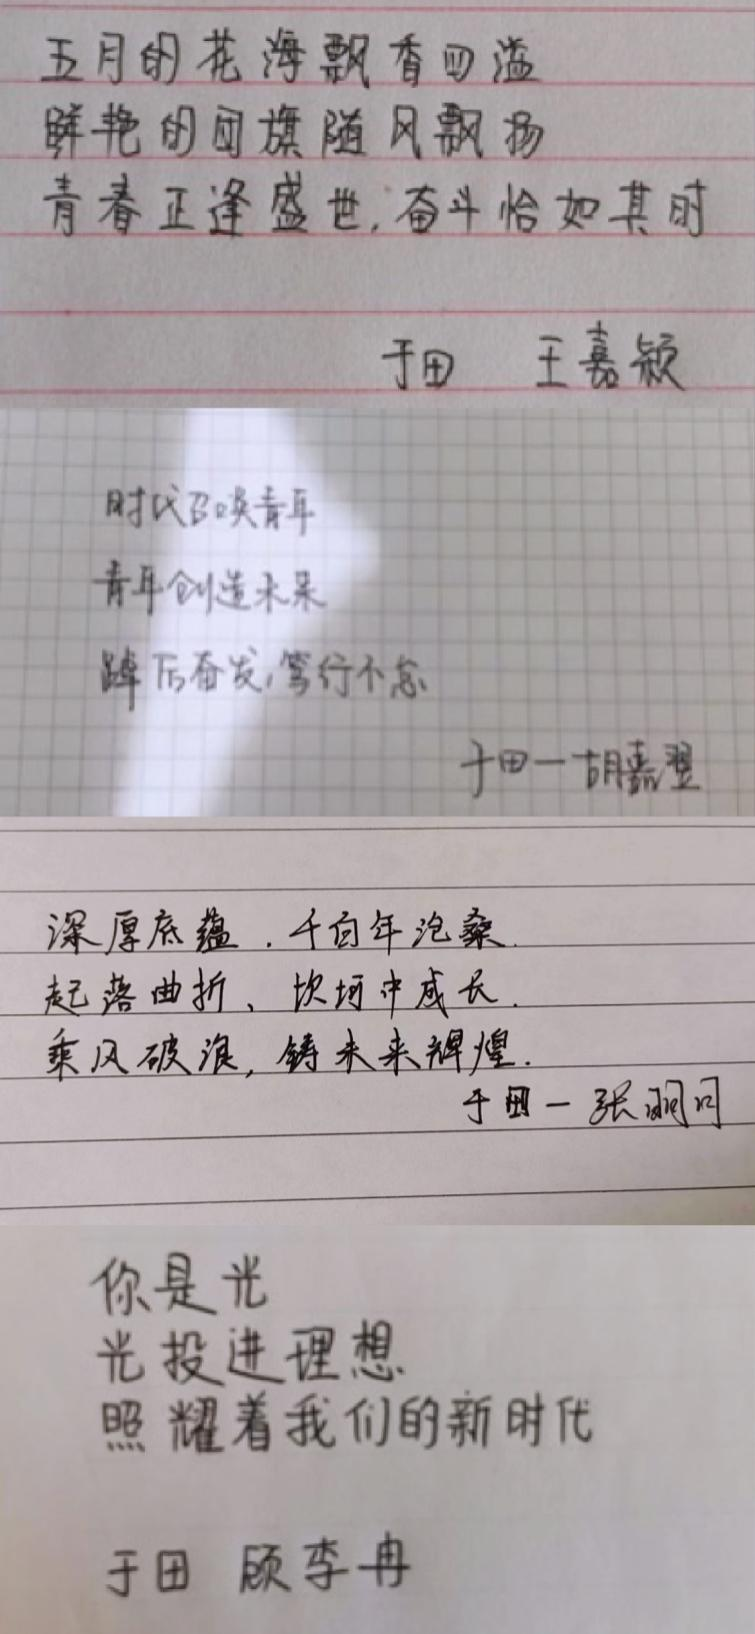 五月的花海飘香四溢
鲜艳的团旗随风飘扬
青春正逢盛世,奋斗恰如其时
于田 王嘉颖
时代召唤青年
青年创造未来
踔厉奋发,笃行不怠
于田一胡嘉翌
深厚底蕴,千百年沧桑.
起落曲折、坎坷中成长.
乘风破浪,铸未来辉煌.
于田一张
你是光
光投进理想
照耀着我们的新时代
于田 顾李冉